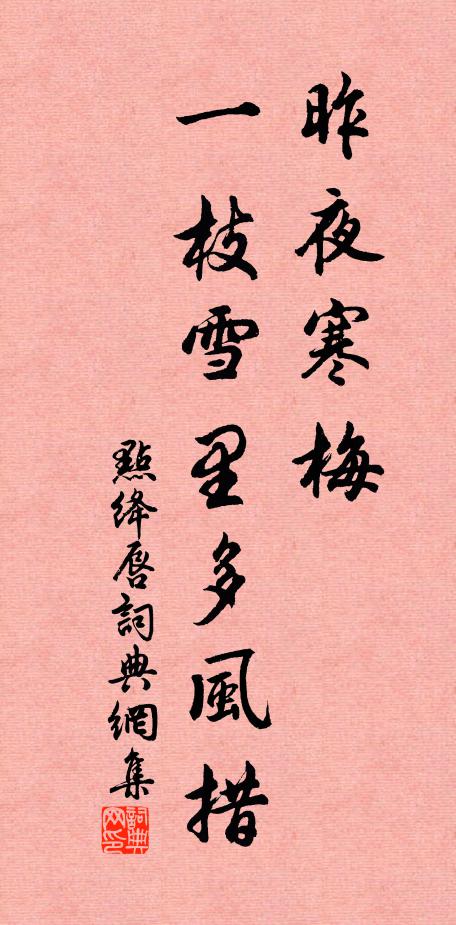 昨夜寒梅
一枝雪里多風措
點絳唇詞典網集
詞典网印